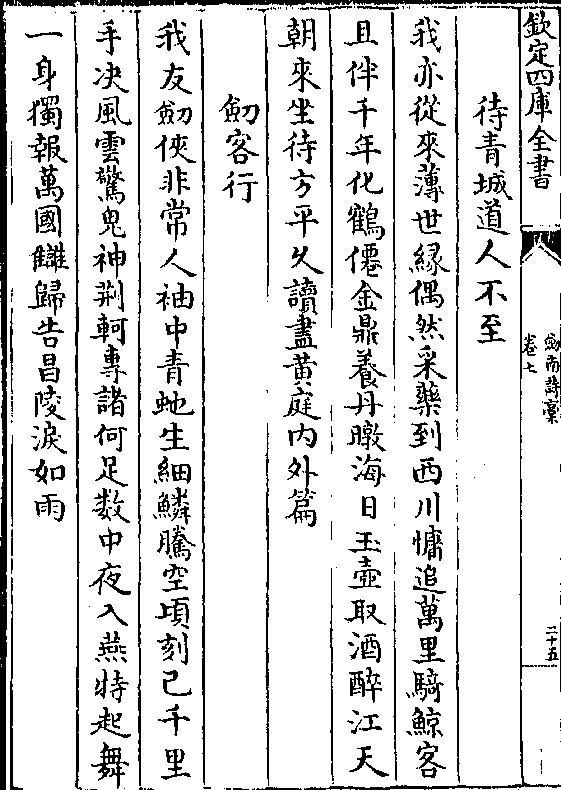 欽定四庫全書
劔南詩稾
卷七
二十五
待青城道人不至
我亦從來薄世緣偶然采藥到西川慵追萬里騎鯨客
且伴千年化鶴僊金鼎養丹暾海日玉壺取酒醉江天
朝來坐待方平久讀盡黄庭内外篇
劒客行
我友劒俠非常人袖中青虵生細鱗騰空頃刻已千里
手决風雲驚鬼神荆軻專諸何足数中夜入燕特起舞
一身獨報萬國讎歸告昌陵淚如雨